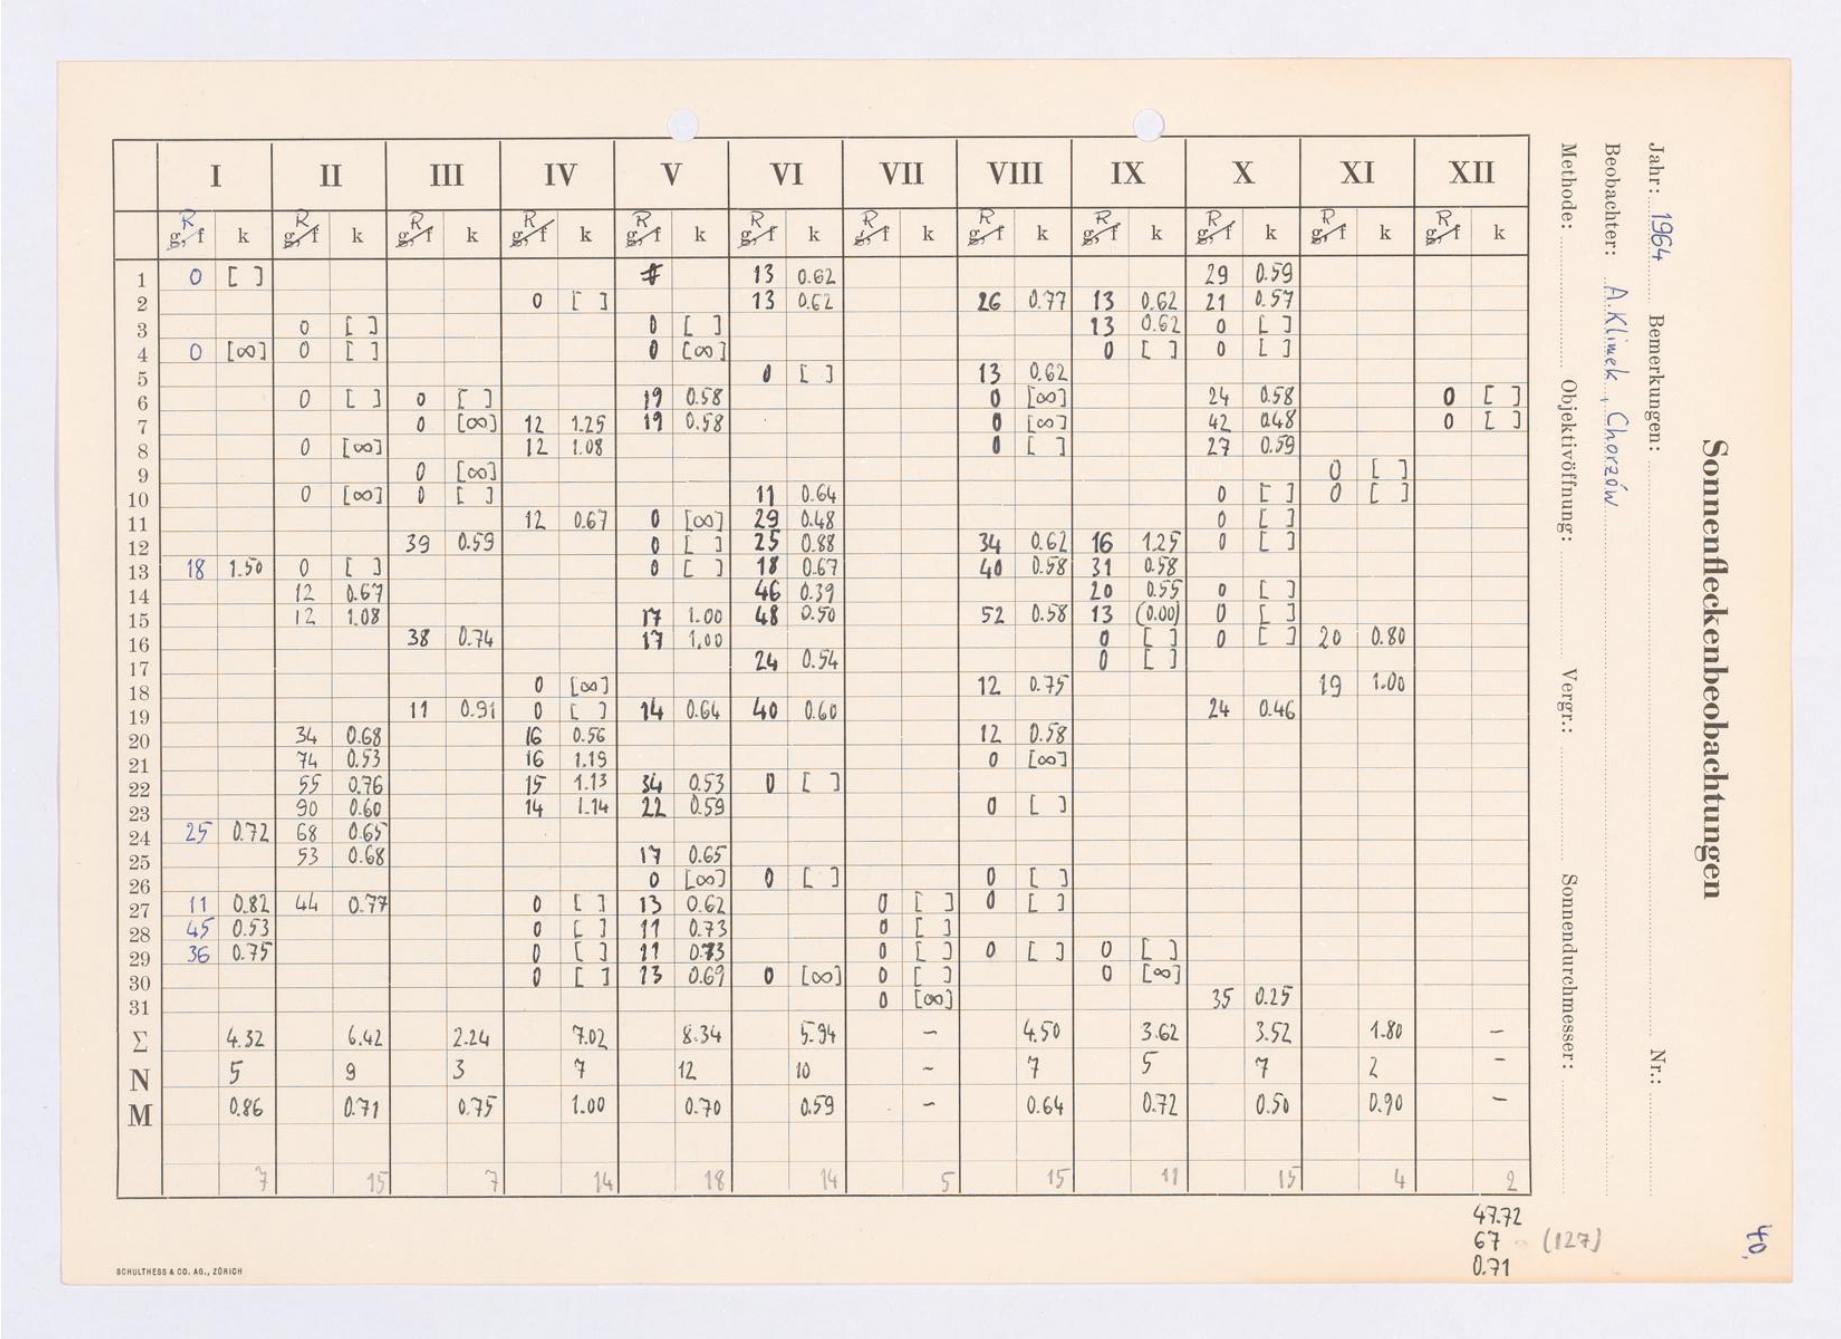 Sonnenfleckenbeobachtungen
Jahr: 1964 Bemerkungen: Nr.:
Beobachter: A. Klimek, Chorzów
Methode: Objektivöffnung: Vergr.: Sonnendurchmesser:
I II III IV V VI VII VIII IX X XI XII
R R R R R R R R R R R R
g, f k g, f k g, f k g, f k g, f k g, f k g, f k g, f k g, f k g, f k g, f k g, f k
1 0 [ ] 13 0.62 29 0.59
2 0 [ ] 13 0.62 26 0.77 13 0.62 21 0.57
3 0 [ ] 0 [ ] 13 0.62 0 [ ]
4 0 [∞] 0 [ ] 0 [∞] 0 [ ] 0 [ ]
5 0 [ ] 13 0.62
6 0 [ ] 0 [ ] 19 0.58 0 [∞] 24 0.58 0 [ ]
7 0 [∞] 12 1.25 19 0.58 0 [∞] 42 0.48 0 [ ]
8 0 [∞] 12 1.08 0 [ ] 27 0.59
9 0 [∞] 0 [ ]
10 0 [∞] 0 [ ] 11 0.64 0 [ ] 0 [ ]
11 12 0.67 0 [∞] 29 0.48 0 [ ]
12 39 0.59 0 [ ] 25 0.88 34 0.62 16 1.25 0 [ ]
13 18 1.50 0 [ ] 0 [ ] 18 0.67 40 0.58 31 0.58
14 12 0.67 46 0.39 20 0.55 0 [ ]
15 12 1.08 17 1.00 48 0.50 52 0.58 13 (0.00) 0 [ ]
16 38 0.74 17 1.00 0 [ ] 0 [ ] 20 0.80
17 24 0.54 0 [ ]
18 0 [∞] 12 0.75 19 1.00
19 11 0.91 0 [ ] 14 0.64 40 0.60 24 0.46
20 34 0.68 16 0.56 12 0.58
21 74 0.53 16 1.19 0 [∞]
22 55 0.76 15 1.13 34 0.53 0 [ ]
23 90 0.60 14 1.14 22 0.59 0 [ ]
24 25 0.72 68 0.65
25 53 0.68 17 0.65
26 0 [∞] 0 [ ] 0 [ ]
27 11 0.82 44 0.77 0 [ ] 13 0.62 0 [ ] 0 [ ]
28 45 0.53 0 [ ] 11 0.73 0 [ ]
29 36 0.75 0 [ ] 11 0.73 0 [ ] 0 [ ] 0 [ ]
30 0 [ ] 13 0.69 0 [∞] 0 [ ] 0 [∞]
31 0 [∞] 35 0.25
Σ 4.32 6.42 2.24 7.02 8.34 5.94 – 4.50 3.62 3.52 1.80 –
N 5 9 3 7 12 10 – 7 5 7 2 –
M 0.86 0.71 0.75 1.00 0.70 0.59 – 0.64 0.72 0.50 0.90 –
7 15 7 14 18 14 5 15 11 15 4 2
47.72
67 (127)
0.71
40
SCHULTHESS & CO. AG., ZÜRICH